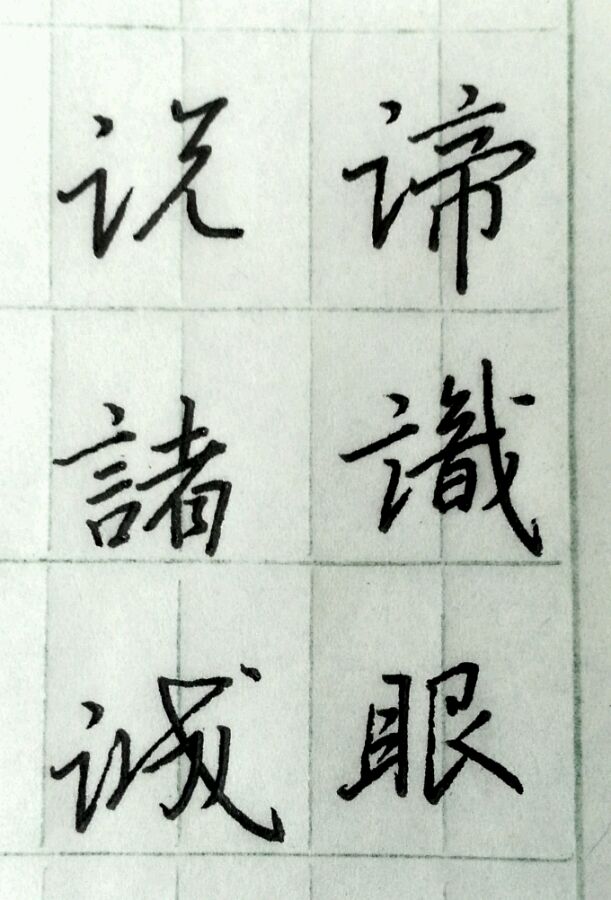 谛識眼
说諸诚